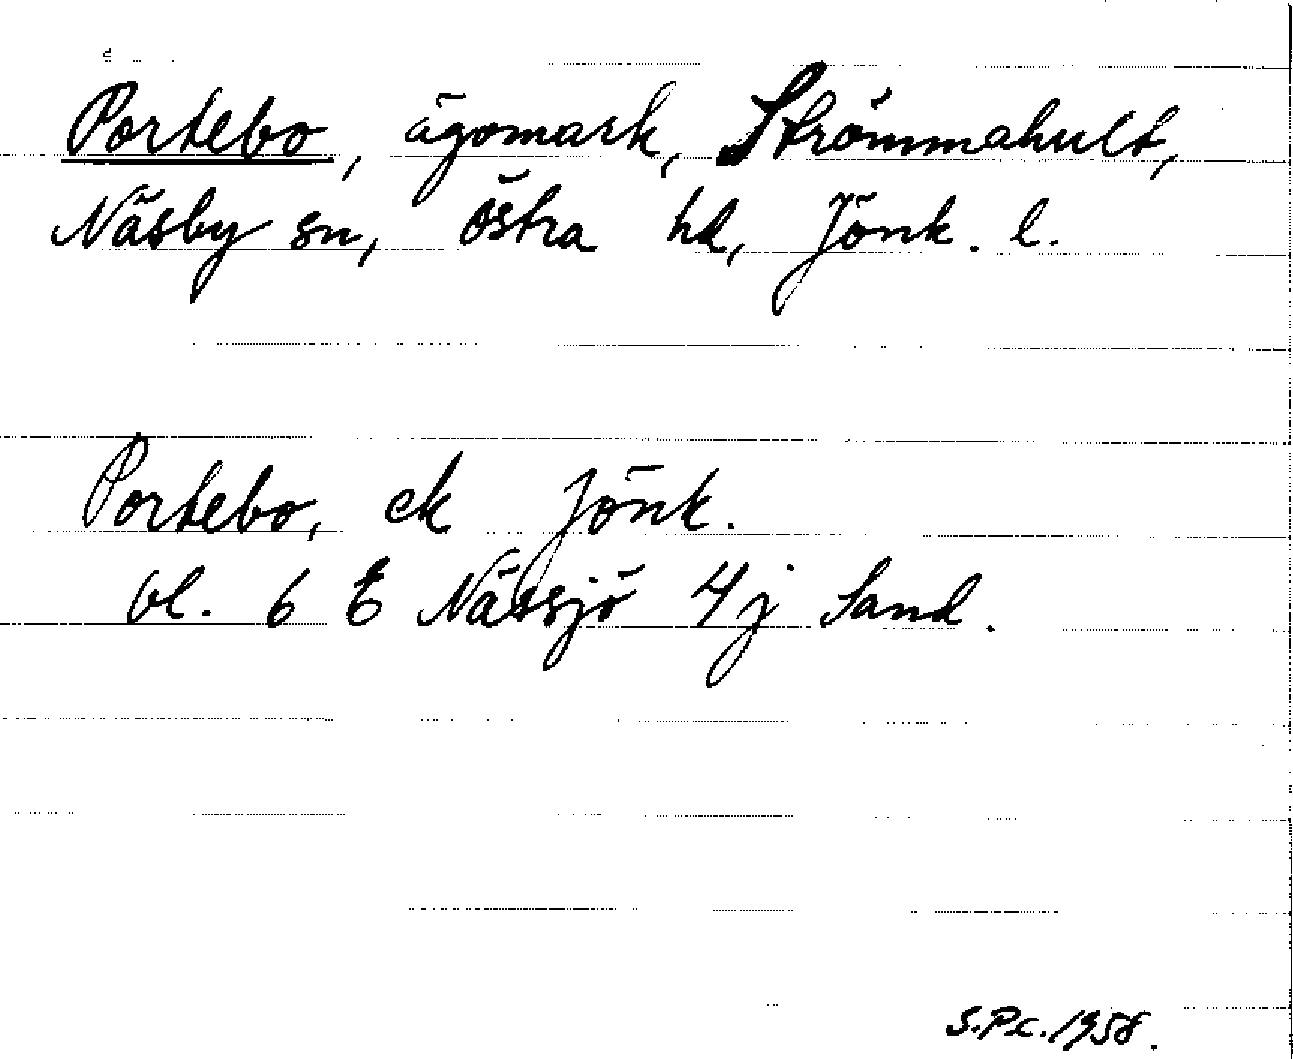 Portebo, ägomark, Strömmahult,
Näsby sn, Östra hd, Jönk. l.
Portebo, ek Jönk.
bl. 6 E Nässjö 4j Sand.
S.P.c. 1958.